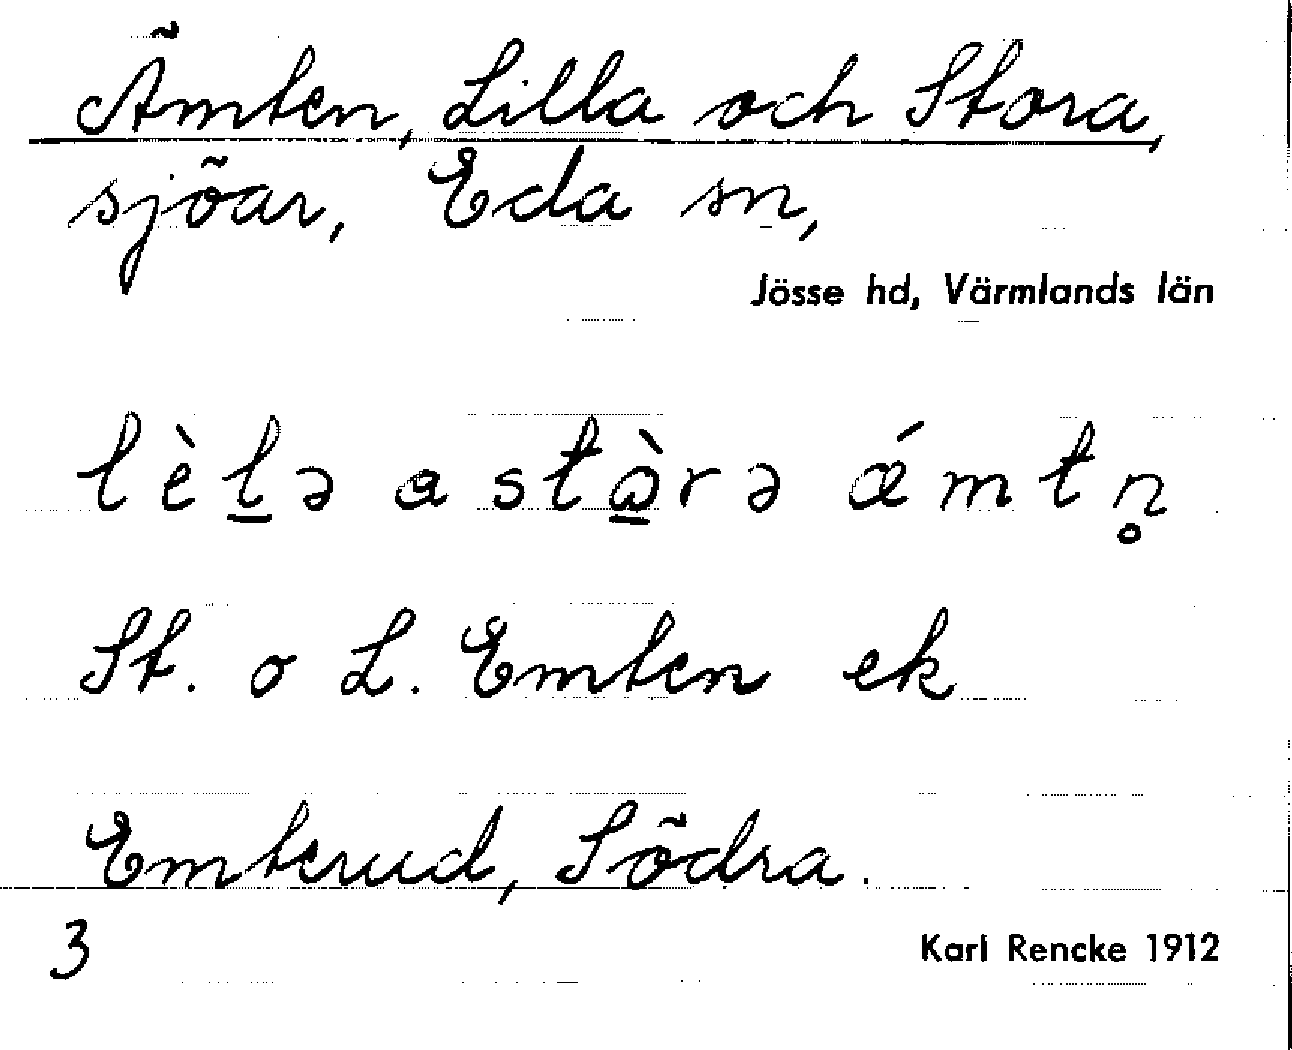 Ämten, Lilla och Stora,
sjöar, Eda sn,
Jösse hd, Värmlands län
lèḻə a stà̱rə ǽmtn̥
St. o L. Emten ek
Emterud, Södra.
3
Karl Rencke 1912